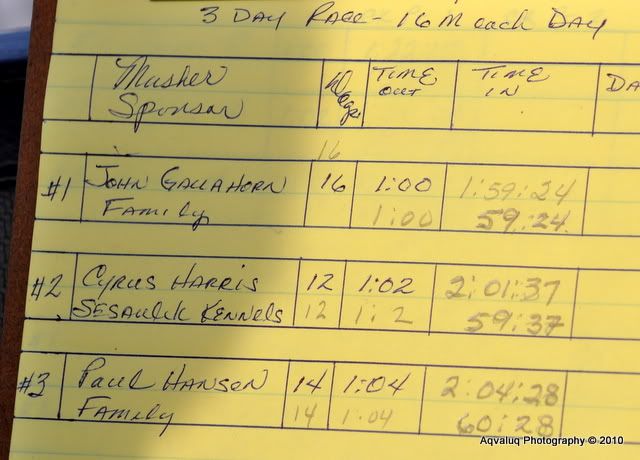 3 DAY RACE - 16 M each DAY
Musher Sponsor Dogs TIME OUT TIME IN DA
16
#1 JOHN GALLAHORN 16 1:00 1:59:24
Family 1:00 59:24
#2 CYRUS HARRIS 12 1:02 2:01:37
SESAULIK KENNELS 12 1:2 59:37
#3 PAUL HANSEN 14 1:04 2:04:28
Family 14 1:04 60:28
Aqvaluq Photography © 2010